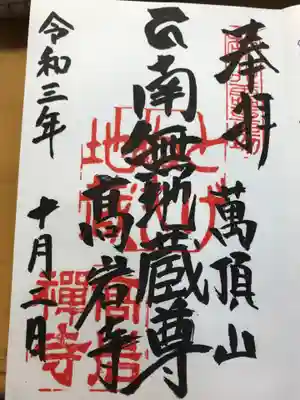 奉拝
萬頂山
南無地蔵尊
髙岩寺
令和三年
十月二日
高岩
禪寺